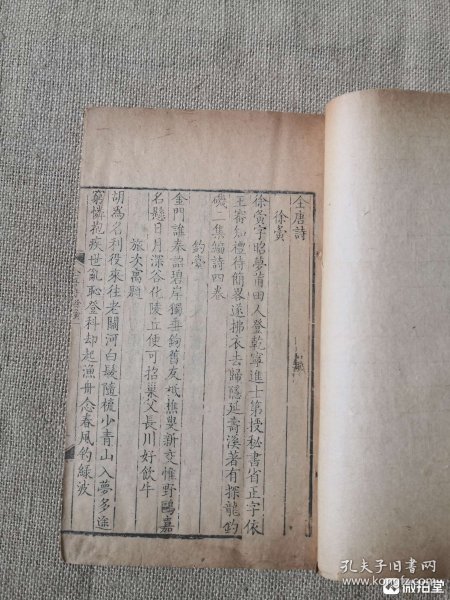 全唐詩
徐夤
徐夤字昭夢莆田人登乾寧進士第授秘書省正字依
王審知禮待簡畧遂拂衣去歸隱延壽溪著有探龍釣
磯二集編詩四卷
釣臺
金門誰奉詔碧岸獨垂鉤舊友祇樵叟新交惟野鷗嘉
名懸日月深谷化陵丘便可招巢父長川好飲牛
旅次寓題
胡為名利役來往老關河白髮隨梳少青山入夢多途
窮憐抱疾世亂恥登科却起漁舟念春風釣綠波
孔夫子旧书网
www.kongfz.com
微拍堂